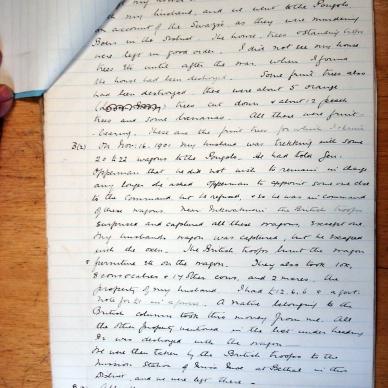 my husband, and we went to the Pongolo
on account of the Swazis, as they were murdering
Boers in the District. The house, trees & standing
were left in good order. I did not see my house
trees etc until after the war when I found
the house had been destroyed. Some fruit trees also
had been destroyed. there were about 5 orange
trees cut down & about 2 peach
trees and some bananas. All these were fruit
bearing. These are the fruit trees for which I claim
B(2) On Nov. 16. 1901 my husband was trekking with some
20 to 22 wagons to the Pongolo. He had told Gen.
Opperman that he did not wish to remain in charge
any longer & asked Opperman to appoint some one else
to the Command but he refused, & so he was in command
of these wagons. Near the British troops
surprised and captured all these wagons, except one.
My husbands wagon was captured, but he escaped
with the oxen. The British troops burnt the wagon
& furniture etc on the wagon. They also took 1 ox,
8 cows & calves & 17 other cows, and 2 mares, the
property of my husband. I had £12.6.6 & a govt.
note for £1 in a purse. A native belonging to the
British column took this money from me. All
the other property mentioned in the list under heading
was destroyed with the wagon
We were then taken by the British troops to the
Mission Station of Miss at Bethel in this
District, and we were left there.